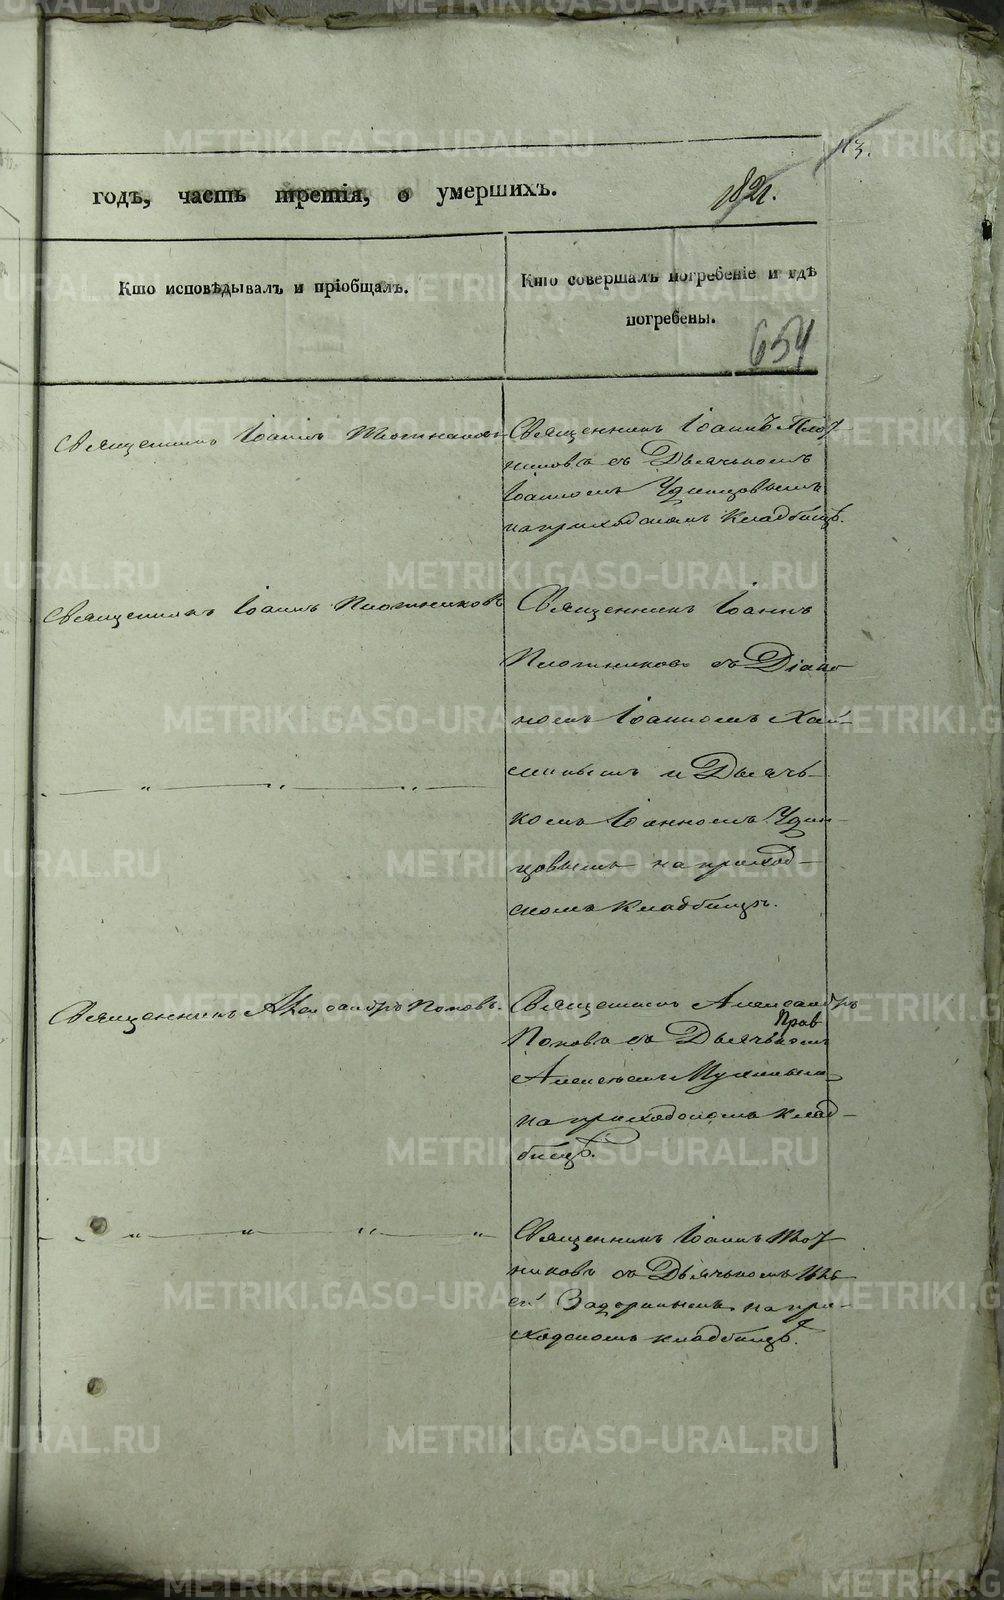 113.
годъ, часть третія, о умершихъ.
1821.
Кто исповѣдывалъ и пріобщалъ.
Кто совершалъ погребеніе и гдѣ
погребены.
654
Священникъ Іоаннъ Плотниковъ
Священникъ Іоаннъ Плот
никовъ съ Дьячькомъ
Іоанномъ Удинцовымъ
на приходскомъ кладбищѣ.
Священникъ Іоаннъ Плотниковъ
Священникъ Іоаннъ
Плотниковъ съ Діако
номъ Іоанномъ
и Дьячь-
комъ Іоанномъ Удин-
цовымъ на приход-
скомъ кладбищѣ.
Священникъ Александръ Поповъ.
Священникъ Александръ
Поповъ съ Дьячькомъ
Алексѣемъ
на приходскомъ клад-
бищѣ.
Священникъ Іоаннъ Плот
никовъ съ Дьячькомъ
Задоринымъ на при-
ходскомъ кладбищѣ.
METRIKI.GASO-URAL.RU